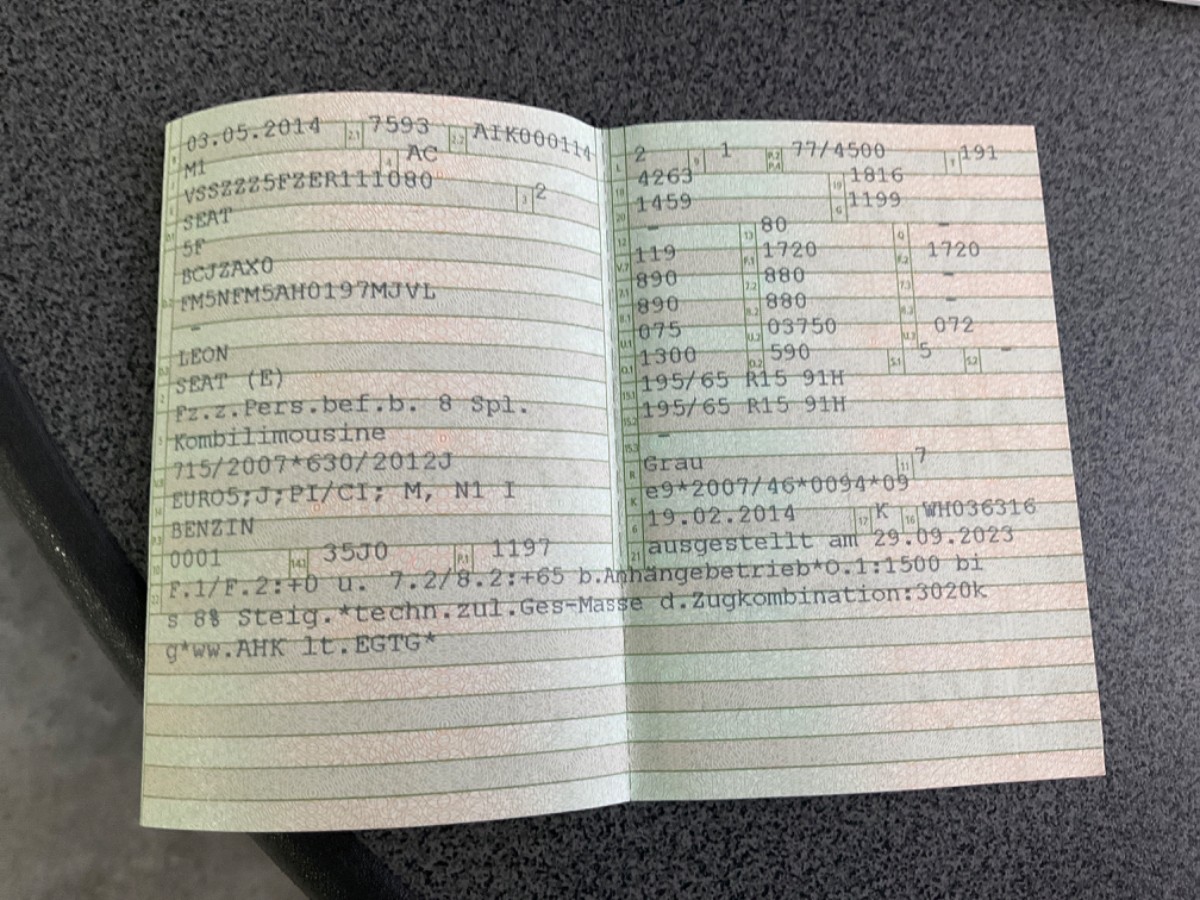 03.05.2014 2.1 7593 2.2 AIK000114
M1 4 AC
VSSZZZ5FZER111080 3 2
SEAT
5F
BCJZAX0
FM5NFM5AH0197MJVL
-
LEON
SEAT (E)
Fz.z.Pers.bef.b. 8 Spl.
Kombilimousine
715/2007*630/2012J
EURO5;J;PI/CI; M, N1 I
BENZIN
0001 14.1 35J0 P.1 1197
L 2 9 1 P.2 P.4 77/4500 T 191
18 4263 19 1816
20 1459 G 1199
12 - 13 80 Q -
V.7 119 F.1 1720 F.2 1720
7.1 890 7.2 880 7.3 -
8.1 890 8.2 880 8.3 -
U.1 075 U.2 03750 U.3 072
O.1 1300 O.2 590 S.1 5 S.2 -
15.1 195/65 R15 91H
15.2 195/65 R15 91H
15.3 -
R Grau 11 7
K e9*2007/46*0094*09
6 19.02.2014 17 K 16 WH036316
21 ausgestellt am 29.09.2023
F.1/F.2:+0 u. 7.2/8.2:+65 b.Anhängebetrieb*O.1:1500 bi
s 8% Steig.*techn.zul.Ges-Masse d.Zugkombination:3020k
g*ww.AHK lt.EGTG*